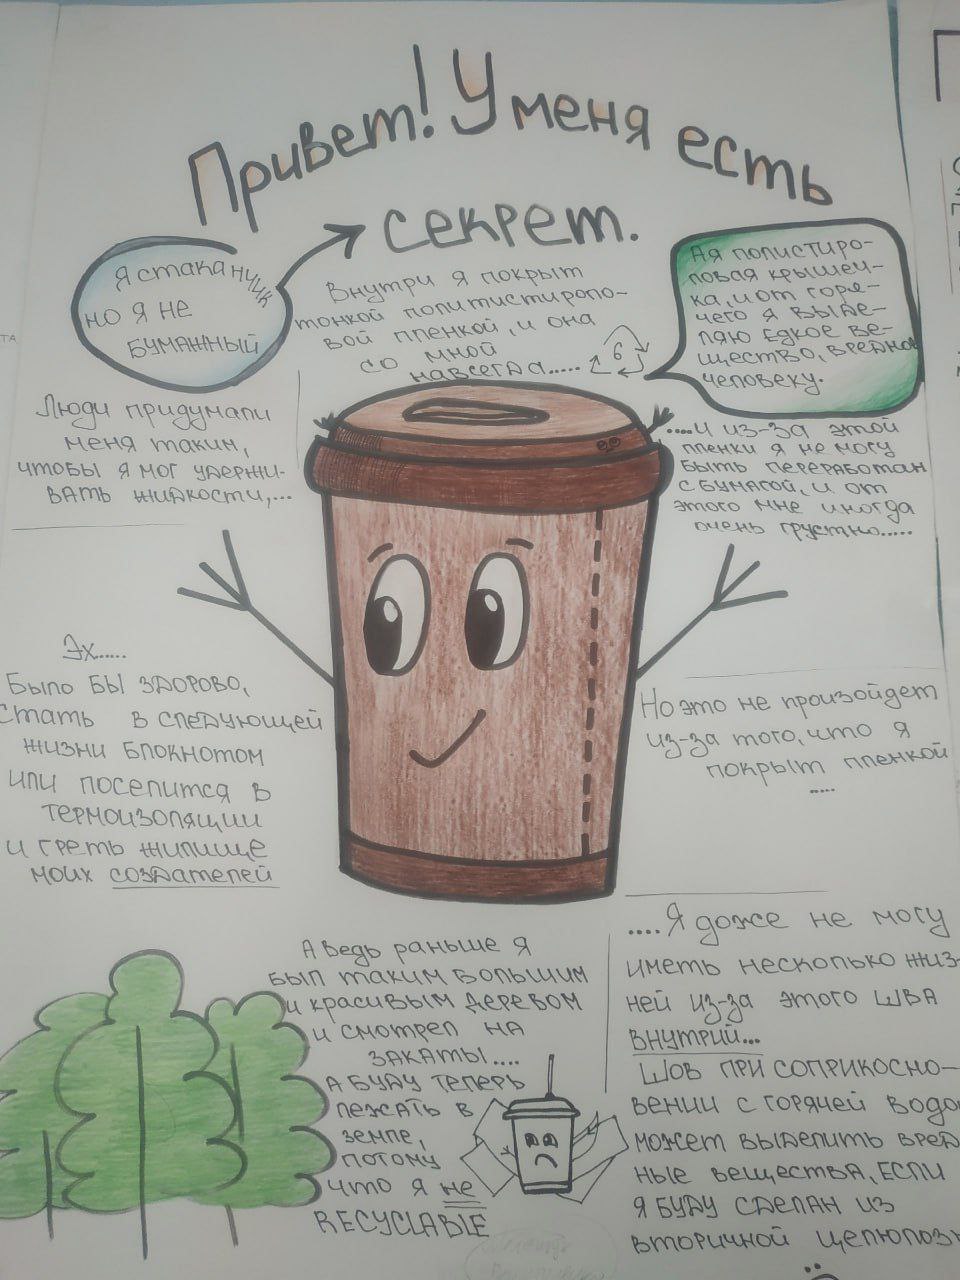 Привет! У меня есть
секрет.
Я стаканчик
но я не
бумажный
Внутри я покрыт
тонкой политистироло-
вой пленкой, и она
со мной
навсегда.....
6
А я полистиро-
ловая крышеч-
ка, и от горя-
чего я выде-
ляю едкое ве-
щество, вредное
человеку.
Люди придумали
меня таким,
чтобы я мог удержи-
вать жидкости,...
....И из-за этой
пленки я не могу
быть переработан
с бумагой, и от
этого мне иногда
очень грустно.....
Эх.....
Было бы здорово,
стать в следующей
жизни блокнотом
или поселится в
термоизоляции
и греть жилище
моих создателей
Но это не произойдет
из-за того, что я
покрыт пленкой
.....
А ведь раньше я
был таким большим
и красивым деревом
и смотрел на
закаты....
А буду теперь
лежать в
земле,
потому
что я не
RECYCLABLE
....Я доже не могу
иметь несколько жиз-
ней из-за этого шва
внутрий...
Шов при соприкосно-
вении с горячей водо
может выделить вред-
ные вещества, если
я буду сделан из
вторичной целюлоз